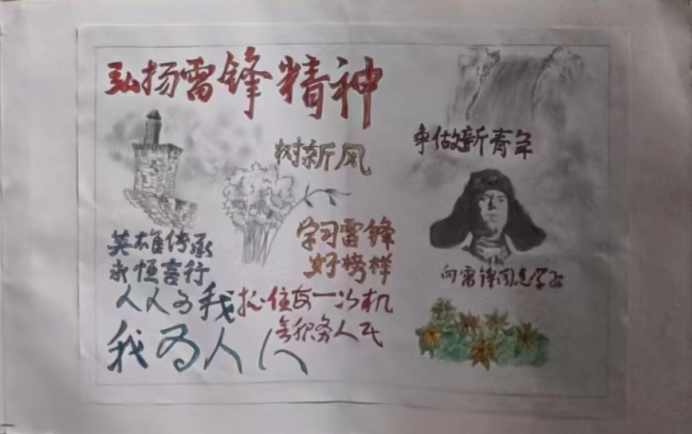 弘扬雷锋精神
树新风
争做新青年
英雄传承
永恒言行
学习雷锋
好榜样
向雷锋同志学习
人人为我
抓住每一次机
会积务人民
我为人人